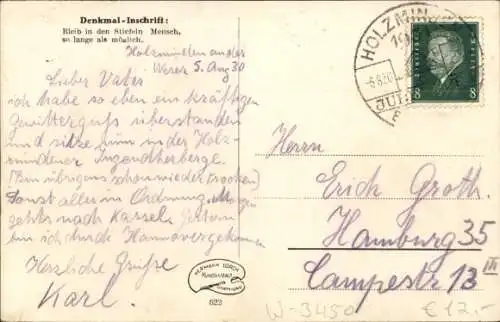 Denkmal-Inschrift:
Bleib in den Stiefeln Mensch,
so lange als möglich.
Holzminden an der
Weser 5. Aug 30
Lieber Vater
ich habe so eben ein kräftigen
Gewitterguss überstanden
und sitze nun in der Holz-
mindener Jugendherberge.
(Bin übrigens schon wieder trocken)
Sonst alles in Ordnung. Morgen
gehts nach Kassel. Gestern
bin ich durch Hannover gekommen
Herzliche Grüsse
Karl.
HOLZMIN
DEUTSCHES REICH
8 8
HERMANN LORCH
KUNSTANSTALT
DORTMUND
622
Herrn
Erich Groth.
Hamburg 35
Campestr 13 III
W-3450
€12,-